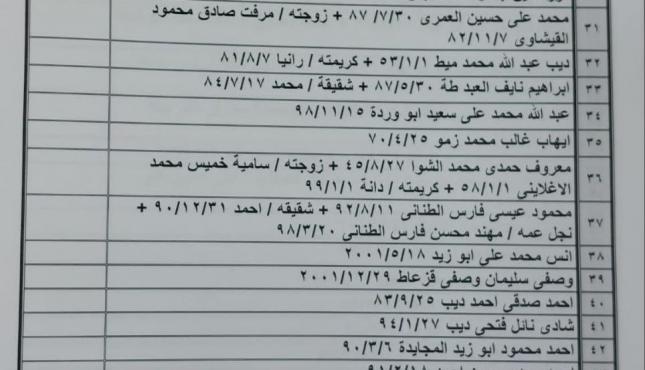 ٣١ محمد على حسين العمرى ٨٧/٧/٣٠ + زوجته / مرفت صادق محمود
القيشاوى ٨٢/١١/٧
٣٢ ديب عبد الله محمد ميط ٥٣/١/١ + كريمته / رانيا ٨١/٨/٧
٣٣ ابراهيم نايف العبد طة ٨٧/٥/٣٠ + شقيقة / محمد ٨٤/٧/١٧
٣٤ عبد الله محمد على سعيد ابو وردة ٩٨/١١/١٥
٣٥ ايهاب غالب محمد زمو ٧٠/٤/٢٥
٣٦ معروف حمدى محمد الشوا ٤٥/٨/٢٧ + زوجته / سامية خميس محمد
الاغلاينى ٥٨/١/١ + كريمته / دانة ٩٩/١/١
٣٧ محمود عيسى فارس الطنانى ٩٢/٨/١١ + شقيقه / احمد ٩٠/١٢/٣١ +
نجل عمه / مهند محسن فارس الطنانى ٩٨/٣/٢٠
٣٨ انس محمد على ابو زيد ٢٠٠١/٥/١٨
٣٩ وصفى سليمان وصفى قزعاط ٢٠٠١/١٢/٢٩
٤٠ احمد صدقى احمد ديب ٨٣/٩/٢٥
٤١ شادى نائل فتحى ديب ٩٤/١/٢٧
٤٢ احمد محمود ابو زيد المجايدة ٩٠/٣/٦